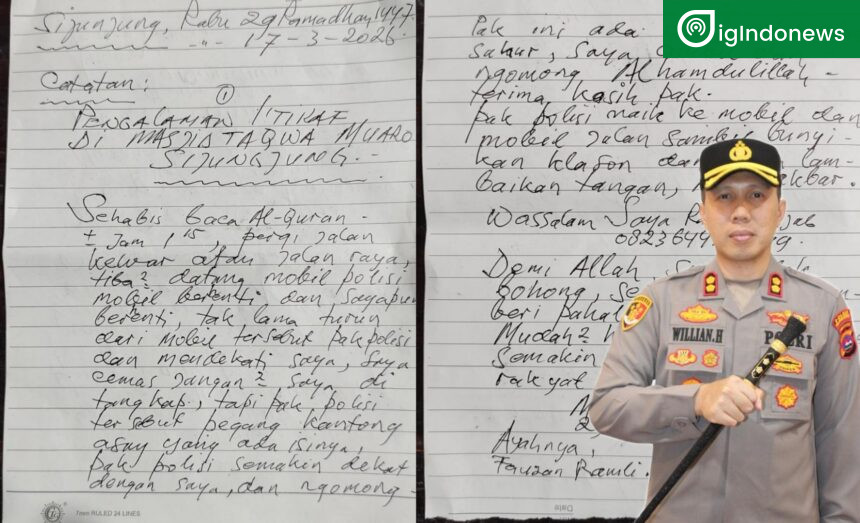 Sijunjung, Rabu 29 Ramadhan 1447.
17-3-2026.
Catatan:
①
PENGALAMAN I'TIKAF
DI MASJID TAQWA MUARO
SIJUNGJUNG.-
Sehabis baca Al-Quran -
± Jam 1 15, pergi jalan
keluar atau jalan raya,
tiba² datang mobil polisi
mobil berenti, dan sayapun
berenti, tak lama turun
dari mobil tersebut pak polisi
dan mendekati saya, saya
cemas jangan², saya di
tangkap, tapi pak polisi
tersebut pegang kantong
asoy yang ada isinya,
pak polisi semakin dekat
dengan saya, dan ngomong -
7mm RULED 24 LINES
Pak ini ada
sahur, saya
ngomong Alhamdulillah -
terima kasih pak.
pak polisi naik ke mobil dan
mobil jalan sambil bunyi-
kan klason dan lam-
baikan tangan,
Wassalam Saya
Demi Allah,
bohong,
beri paha
Mudah²
Semakin
rakyat
Ayahnya,
Fauzan Ramli.
igIndonews
WILLIAN.H
POLRI